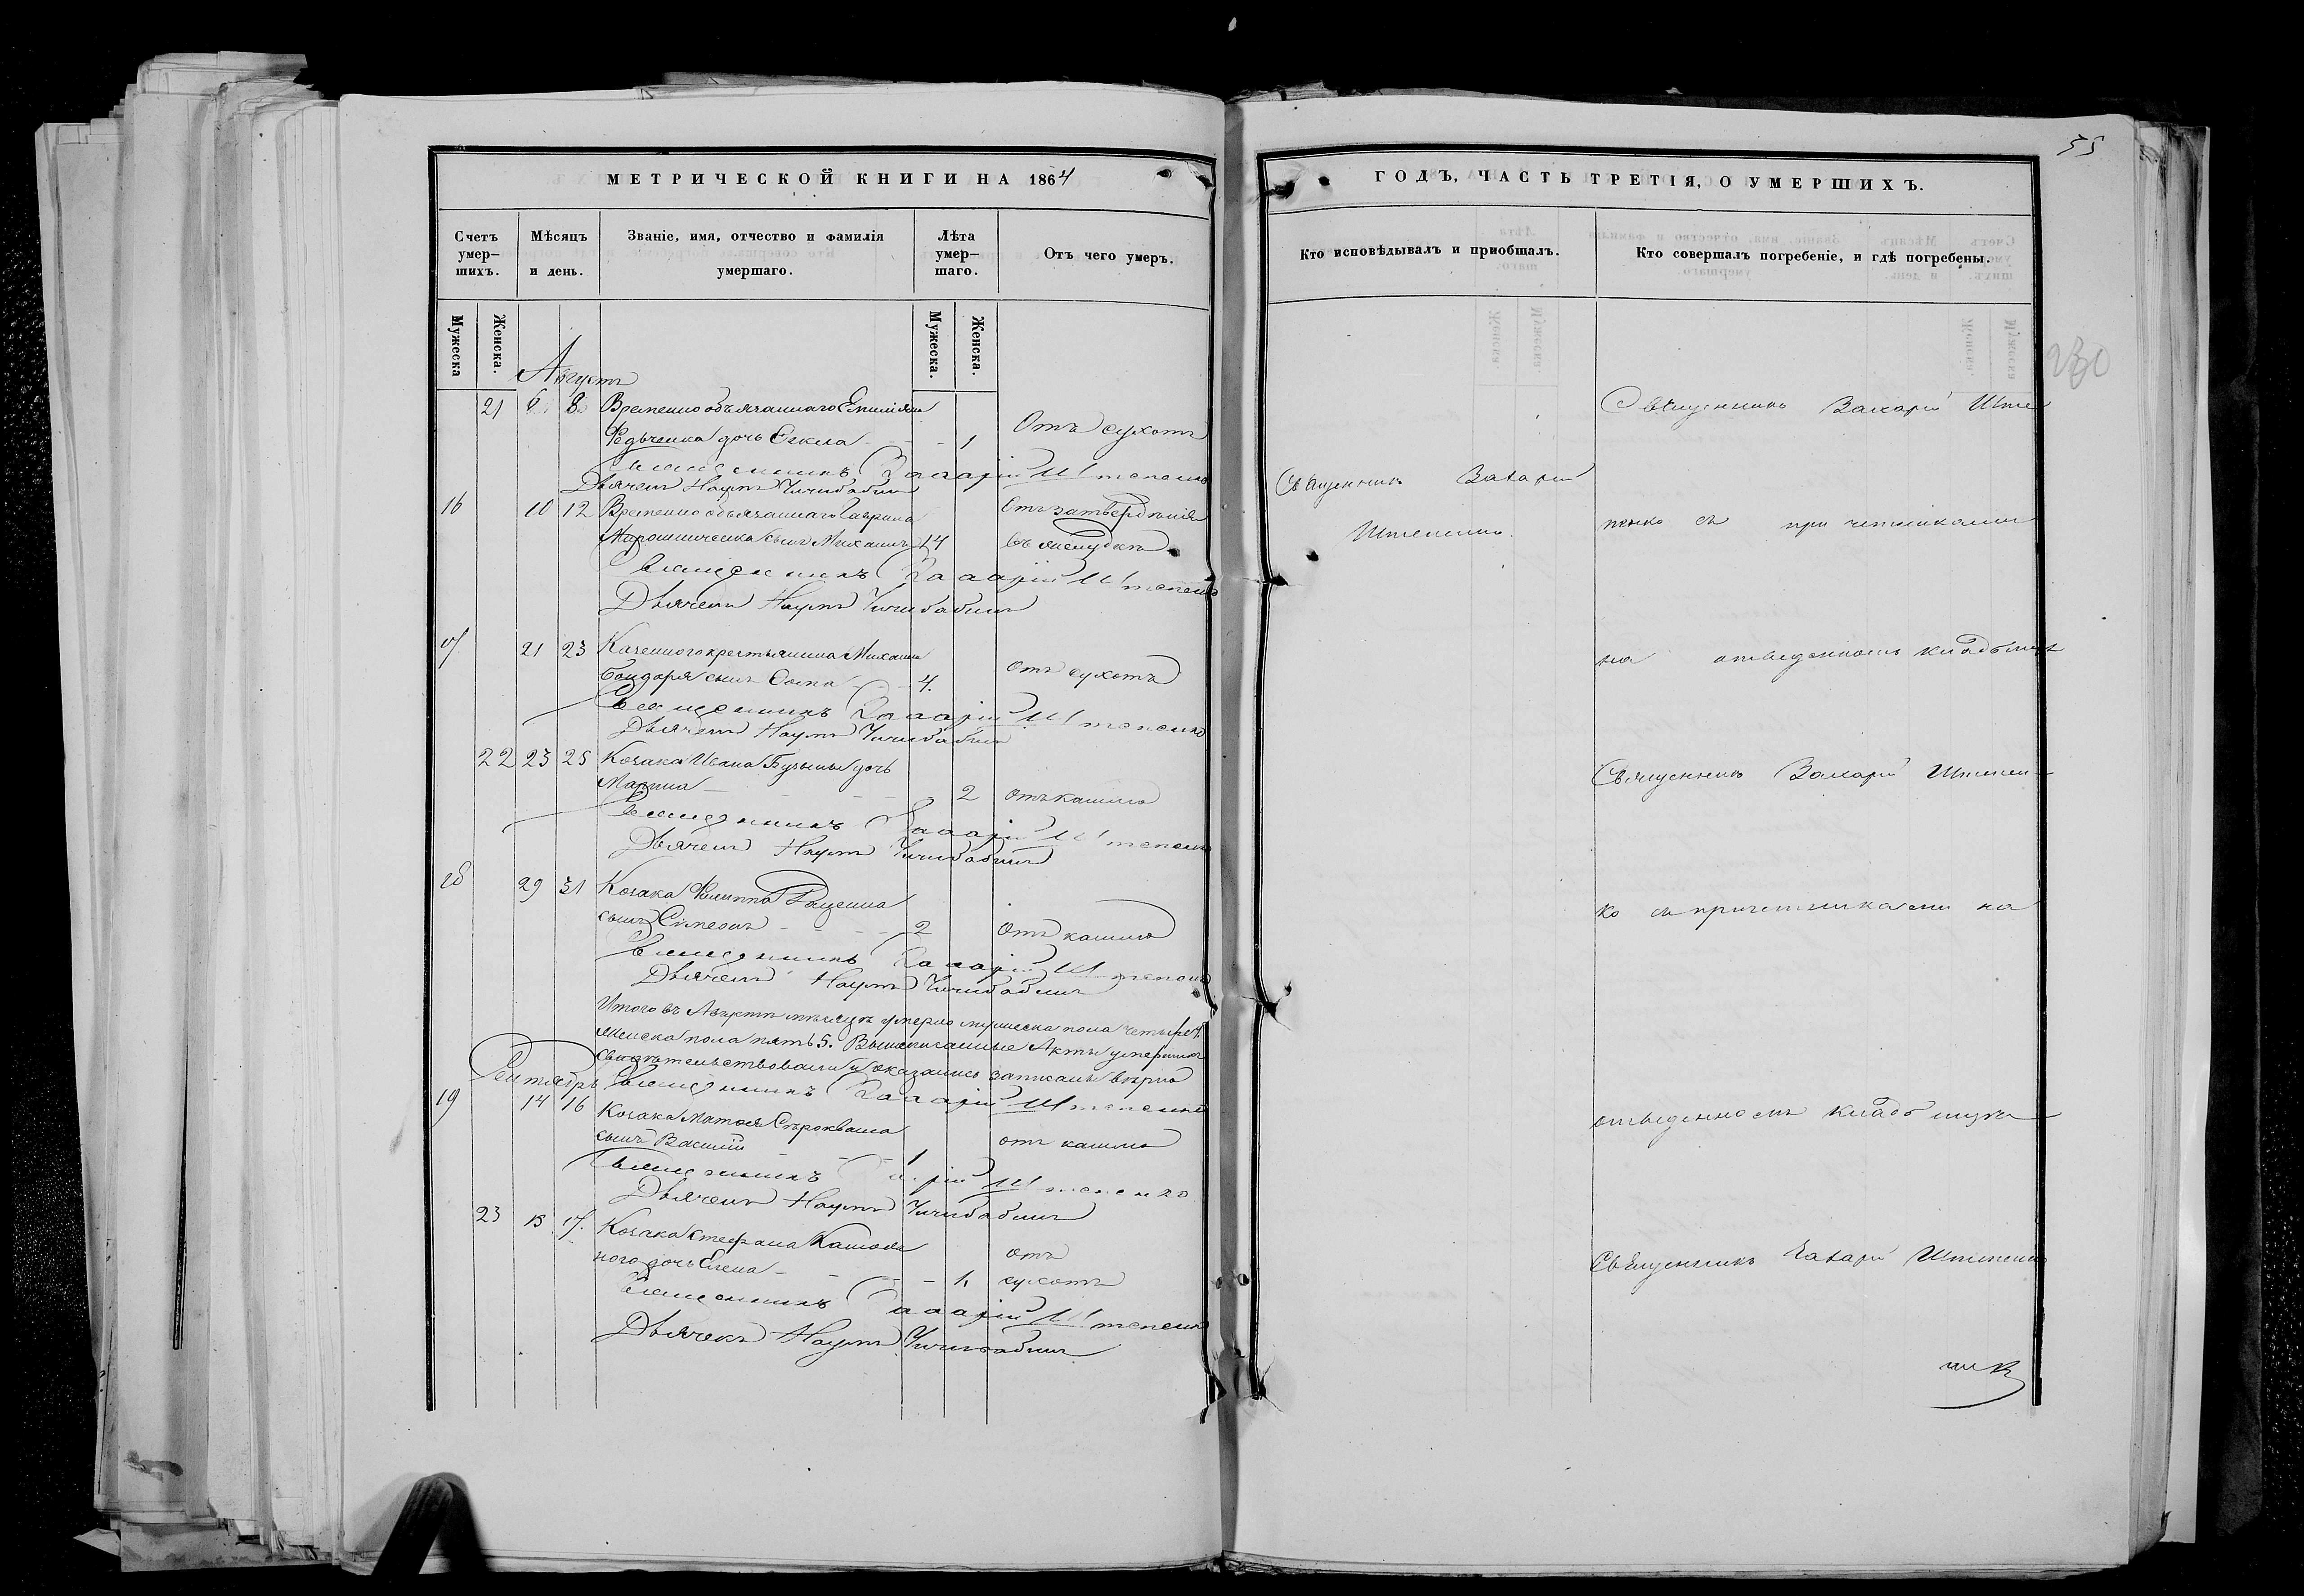 МЕТРИЧЕСКОЙ КНИГИ НА 1864
Счетъ умер-шихъ.
Мѣсяцъ и день.
Званіе, имя, отчество и фамилія умершаго.
Лѣта умер-шаго.
Отъ чего умеръ.
Мужеска
Женска.
Мужеска.
Женска.
Августъ
21 6 8 Временно обязаннаго Емиліяна
Федченка дочь - - 1 Отъ сухотъ
Священникъ Захарій Штепенко
Дьячекъ Наумъ Чичибабинъ
16 10 12 Временно обязаннаго Гаврила
Мирошниченка сынъ Михаилъ 14 Отъ затвердѣнія
въ желудкѣ
Священникъ Захарій Штепенко
Дьячекъ Наумъ Чичибабинъ
17 21 23 Казенного крестьянина Михаила
Бондаря сынъ - - 4. Отъ сухотъ
Священникъ Захарій Штепенко
Дьячекъ Наумъ Чичибабинъ
22 23 25 Козака Ивана дочь
Марина - - - 2 Отъ кашлю
Священникъ Захарій Штепенко
Дьячекъ Наумъ Чичибабинъ
18 29 31 Козака Филиппа
сынъ Симеонъ - - - 2 Отъ кашлю
Священникъ Захарій Штепенко
Дьячекъ Наумъ Чичибабинъ
Итого въ Августѣ мѣсяцѣ умерло мужеска пола четыре 4.
Женска пола пять 5. Вышеписанные Акты умершихъ
свидѣтельствовали и оказались записаны вѣрно
Сентябрь Священникъ Захарій Штепенко
19 14 16 Козака Матвея Сыроваша
сынъ Василій - - - 1 отъ кашлю
Священникъ Захарій Штепенко
Дьячекъ Наумъ Чичибабинъ
23 15 17. Козака Стефана
ного дочь Елена - - - 1. отъ
сухотъ
Священникъ Захарій Штепенко
Дьячекъ Наумъ Чичибабинъ
55
ГОДЪ, ЧАСТЬ ТРЕТІЯ, О УМЕРШИХЪ.
Кто исповѣдывалъ и пріобщалъ.
Кто совершалъ погребеніе, и гдѣ погребены.
Священникъ Захарій
Штепенко.
Священникъ ЗахарійШте
пенко съ причетниками
на отведенномъ кладбищѣ
Священникъ Захарій Штепен
ко съ причетниками на
отведенномъ кладбищѣ
Священникъ Захарій Штепенко